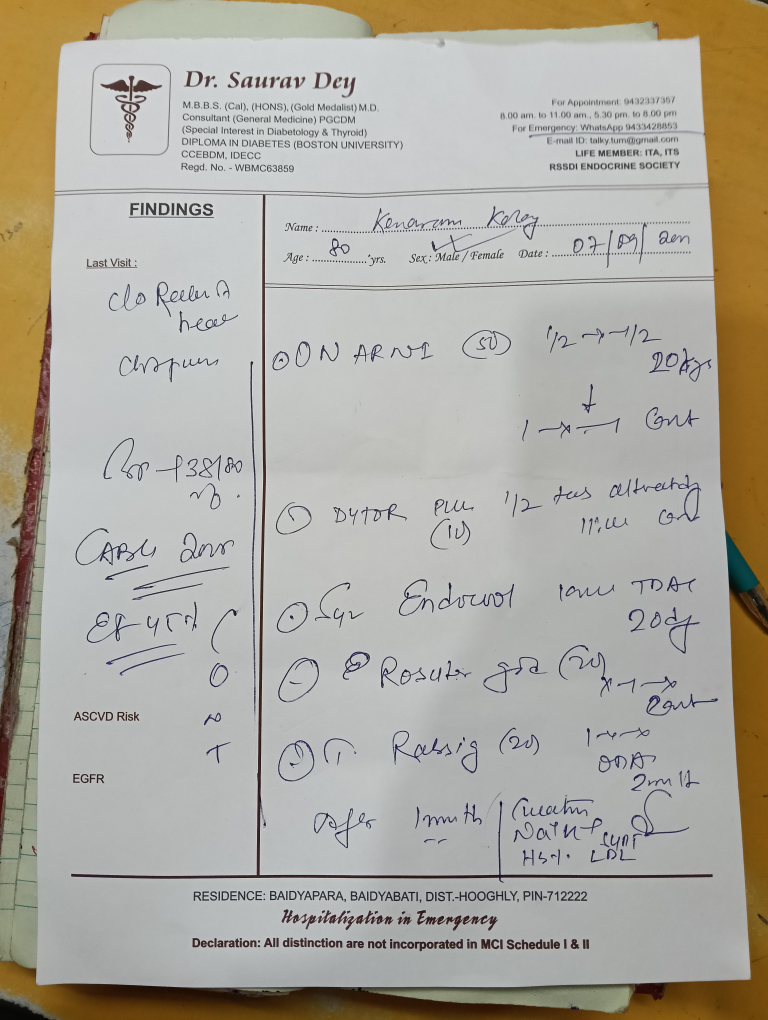 Dr. Saurav Dey
M.B.B.S. (Cal), (HONS), (Gold Medalist) M.D.
Consultant (General Medicine) PGCDM
(Special Interest in Diabetology & Thyroid)
DIPLOMA IN DIABETES (BOSTON UNIVERSITY)
CCEBDM, IDECC
Regd. No. - WBMC63859
For Appointment: 9432337357
8.00 am. to 11.00 am., 5.30 pm. to 8.00 pm
For Emergency: WhatsApp 9433428853
E-mail ID: talky.tum@gmail.com
LIFE MEMBER: ITA, ITS
RSSDI ENDOCRINE SOCIETY
FINDINGS
Last Visit :
c/o
BP - 138/80
CABG
EF 45%
C
O
N
T
ASCVD Risk
EGFR
Name : Kenaram Koley
Age : 80 yrs. Sex : Male / Female Date : 07/09/
ON ARNI (50) 1/2 - x - 1/2
20 days
↓
1 - x - 1 Cont
DYTOR Plus 1/2 tab alternately
(10) Cont
Syr TDAC
20 d
Rosutor gold (20) x - 1 - x
Cont
T. (20) 1 - x - x
ODAC
2 mnth
After 1 month
Creatinine
Na+ K+
SGPT
Hb% LDL
RESIDENCE: BAIDYAPARA, BAIDYABATI, DIST.-HOOGHLY, PIN-712222
Hospitalization in Emergency
Declaration: All distinction are not incorporated in MCI Schedule I & II